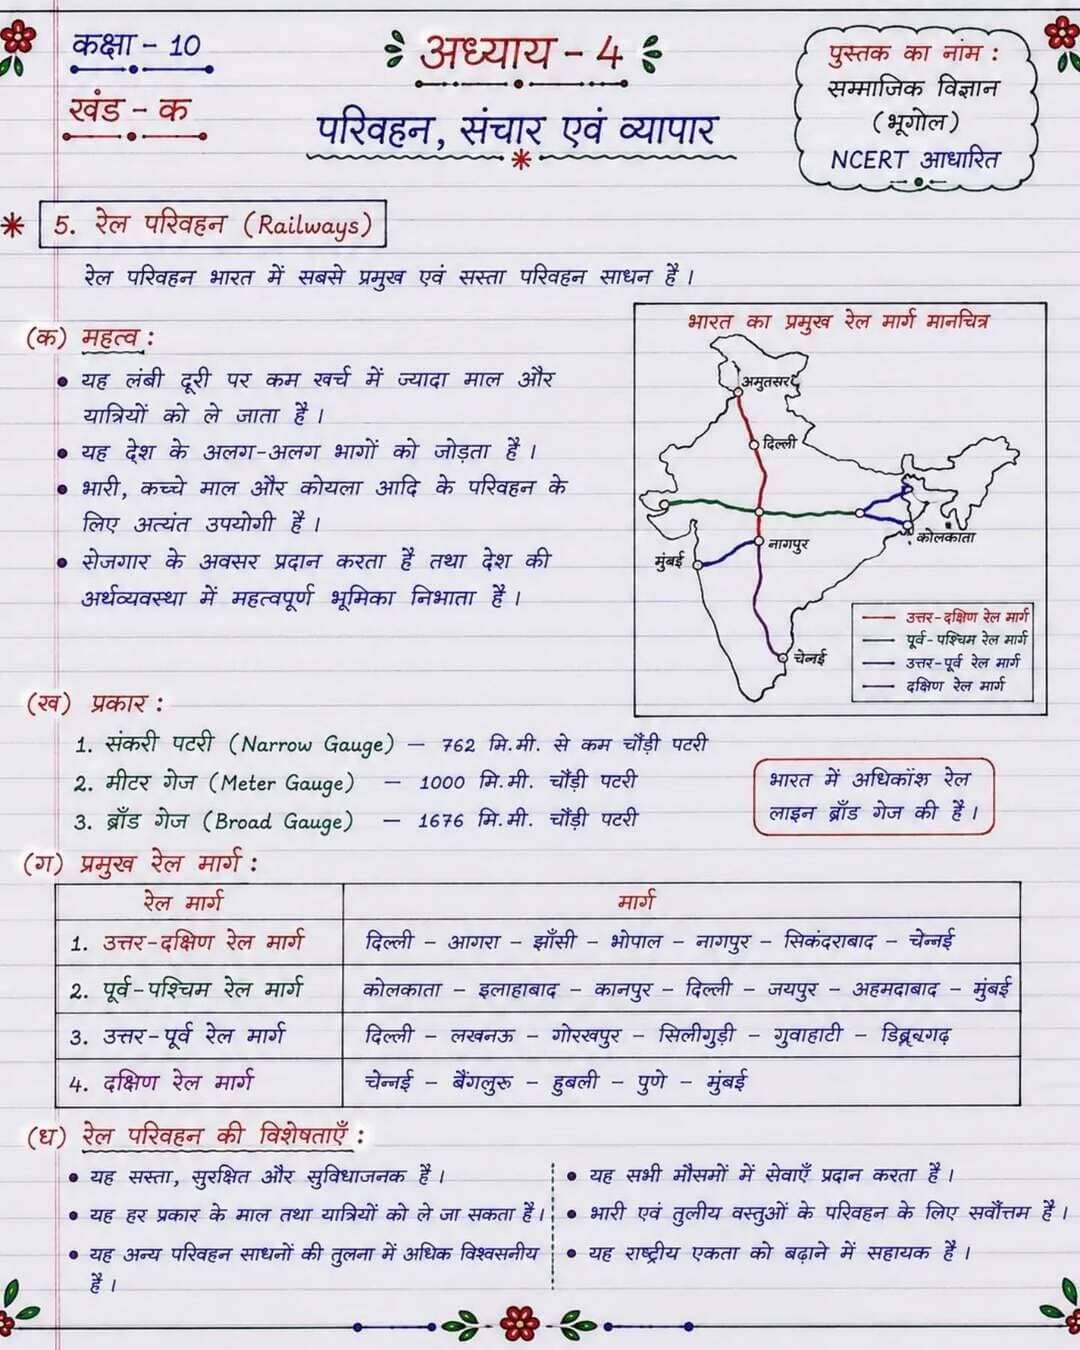 कक्षा - 10
खंड - क
अध्याय - 4
परिवहन, संचार एवं व्यापार
पुस्तक का नांम :
सम्माजिक विज्ञान
(भूगोल)
NCERT आधारित
5. रेल परिवहन (Railways)
रेल परिवहन भारत में सबसे प्रमुख एवं सस्ता परिवहन साधन है।
(क) महत्व :
• यह लंबी दूरी पर कम खर्च में ज्यादा माल और
यात्रियों को ले जाता है।
• यह देश के अलग-अलग भागों को जोड़ता है।
• भारी, कच्चे माल और कोयला आदि के परिवहन के
लिए अत्यंत उपयोगी है।
• सेजगार के अवसर प्रदान करता है तथा देश की
अर्थव्यवस्था में महत्वपूर्ण भूमिका निभाता है।
भारत का प्रमुख रेल मार्ग मानचित्र
अमृतसर
दिल्ली
नागपुर
मुंबई
कोलकाता
चेन्नई
उत्तर-दक्षिण रेल मार्ग
पूर्व-पश्चिम रेल मार्ग
उत्तर-पूर्व रेल मार्ग
दक्षिण रेल मार्ग
(ख) प्रकार :
1. संकरी पटरी (Narrow Gauge) – 762 मि.मी. से कम चौड़ी पटरी
2. मीटर गेज (Meter Gauge) – 1000 मि.मी. चौंड़ी पटरी
3. ब्रॉड गेज (Broad Gauge) – 1676 मि.मी. चौंड़ी पटरी
भारत में अधिकांश रेल
लाइन ब्रॉड गेज की है।
(ग) प्रमुख रेल मार्ग :
रेल मार्ग मार्ग
1. उत्तर-दक्षिण रेल मार्ग दिल्ली – आगरा – झाँसी – भोपाल – नागपुर – सिकंदराबाद – चेन्नई
2. पूर्व-पश्चिम रेल मार्ग कोलकाता – इलाहाबाद – कानपुर – दिल्ली – जयपुर – अहमदाबाद – मुंबई
3. उत्तर-पूर्व रेल मार्ग दिल्ली – लखनऊ – गोरखपुर – सिलीगुड़ी – गुवाहाटी –
4. दक्षिण रेल मार्ग चेन्नई – बैंगलुरू – हुबली – पुणे – मुंबई
(ध) रेल परिवहन की विशेषताएँ :
• यह सस्ता, सुरक्षित और सुविधाजनक है।
• यह हर प्रकार के माल तथा यात्रियों को ले जा सकता है।
• यह अन्य परिवहन साधनों की तुलना में अधिक विश्वसनीय
है।
• यह सभी मौसमों में सेवाएँ प्रदान करता है।
• भारी एवं तुलीय वस्तुओं के परिवहन के लिए सर्वोत्तम है।
• यह राष्ट्रीय एकता को बढ़ाने में सहायक है।